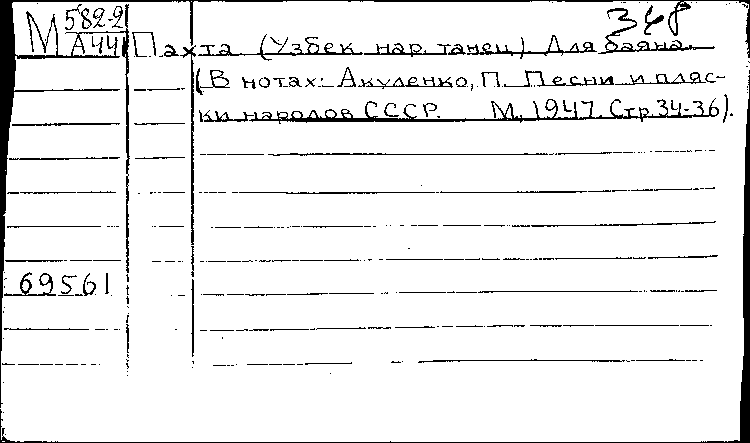 М 582-2 348
А44 Пахта (Узбек. нар. танец) Для баяна.
(В нотах: Акуленко, П. Песни и пляс-
ки народов СССР. М, 1947. Стр. 34-36).
69561